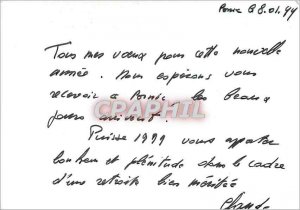 Pornic 08.01.99
Tous mes vœux pour cette nouvelle
année. Nous espérons vous
recevoir à Pornic les beaux
jours
CPAPHIL
Puisse 1999 vous apporter
bonheur et plénitude dans le cadre
d'une retraite bien méritée
Claude